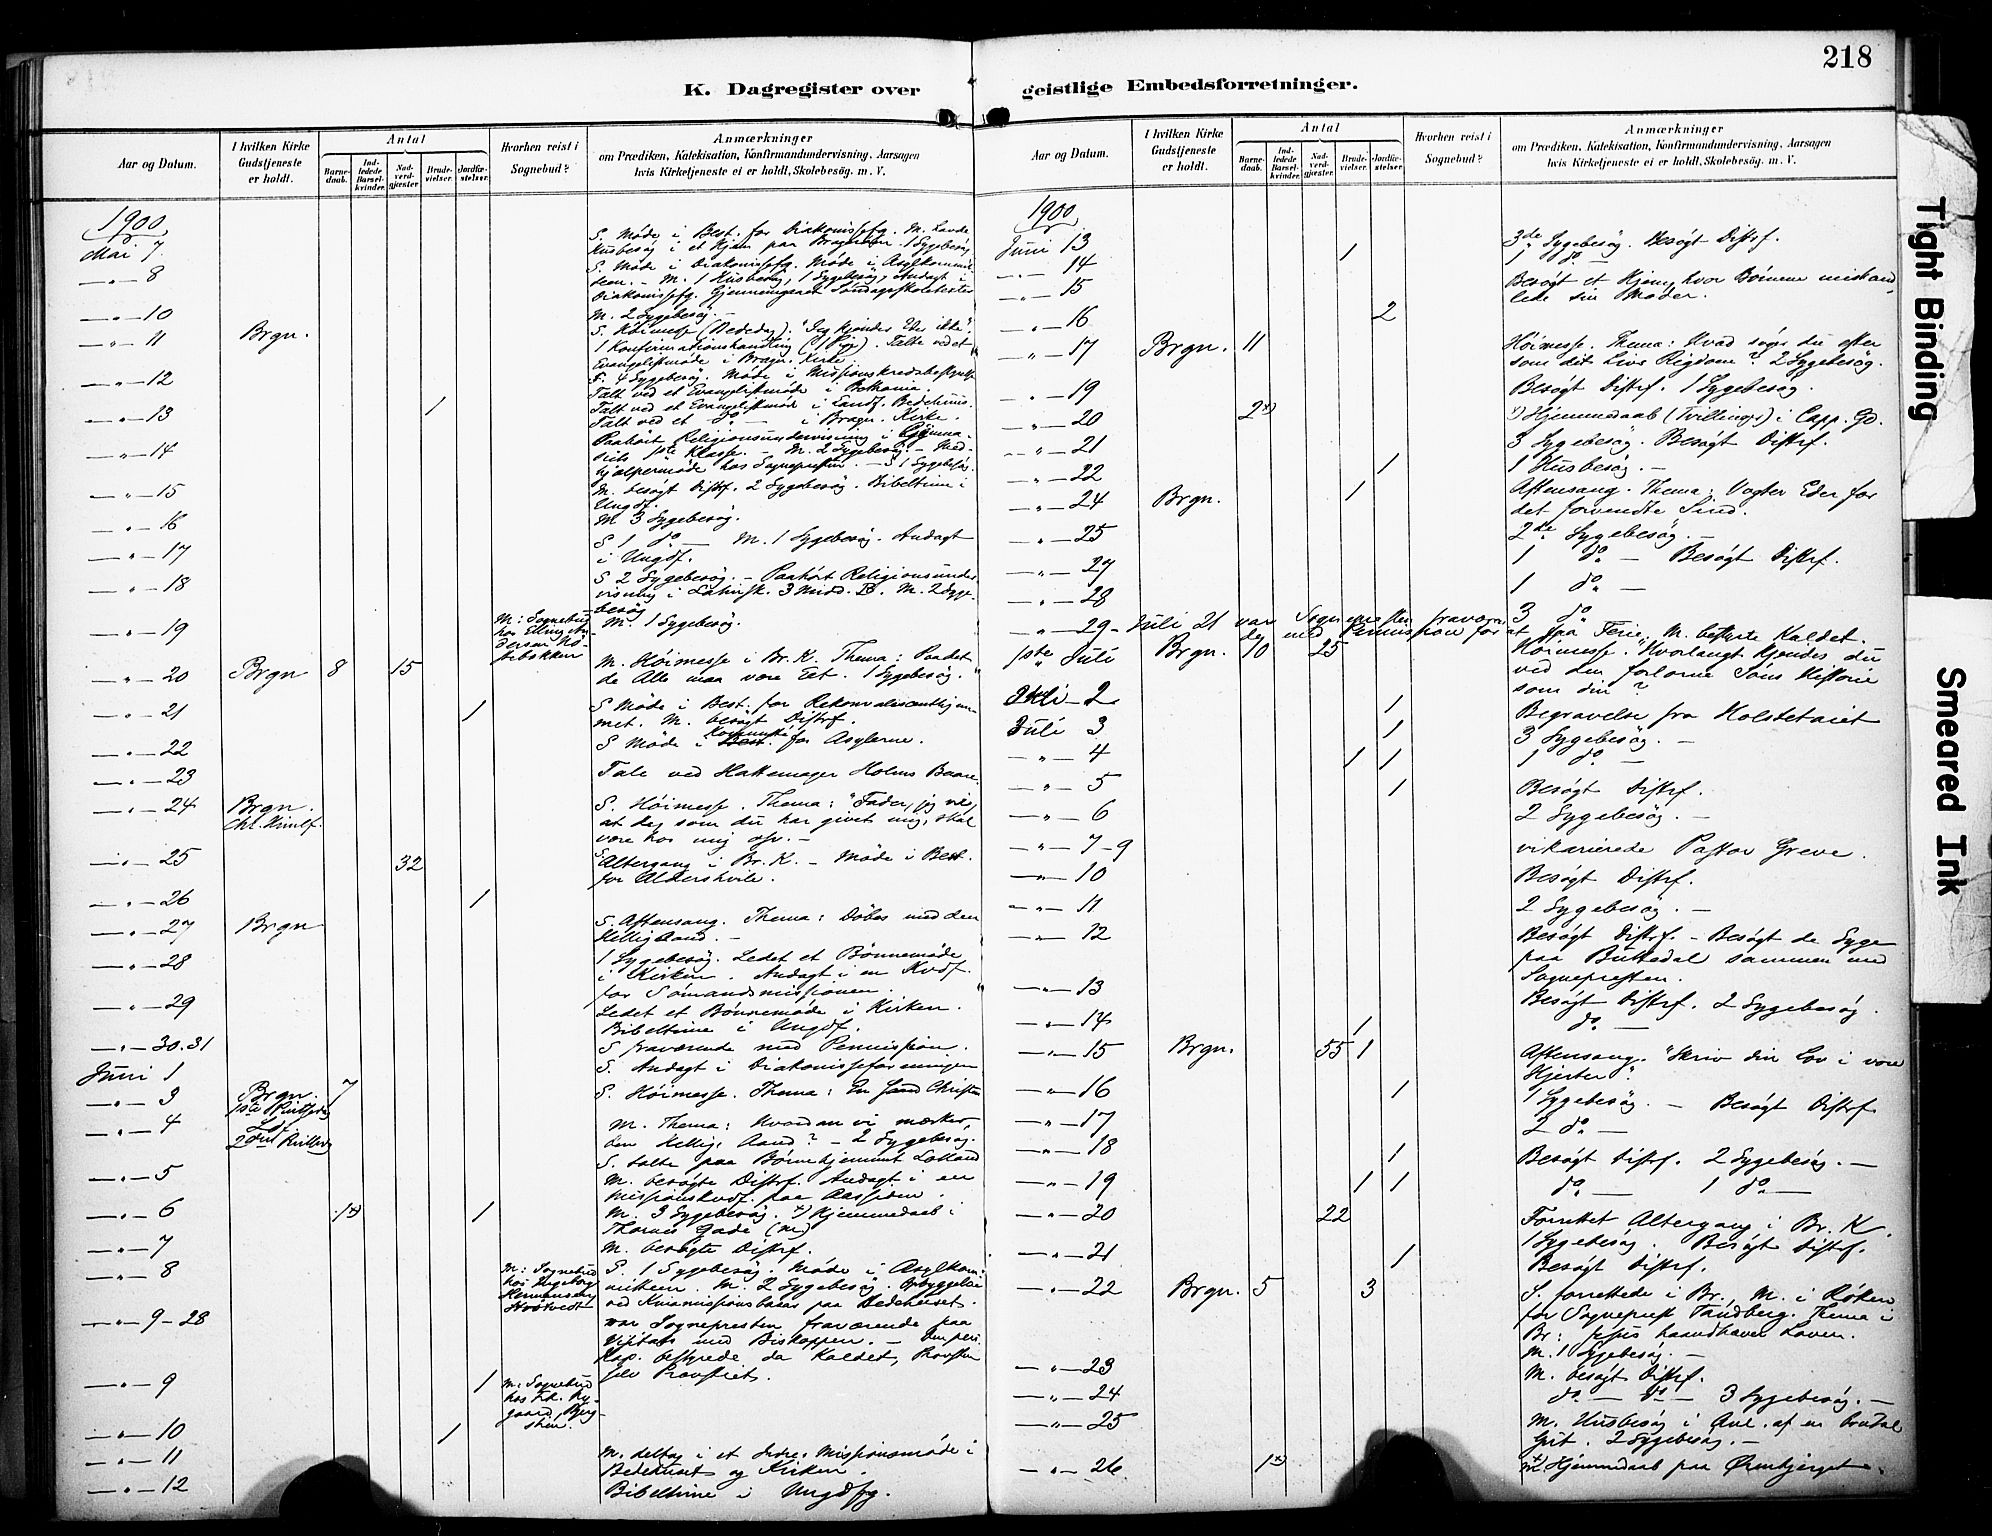 218
K. Dagregister over geistlige Embedsforretninger.
Aar og Datum.
I hvilken Kirke Gudstjeneste er holdt.
Antal
Barnedaab.
Indledede Barselkvinder.
Nadverdgjæster
Brudevielser.
Jordfæstelser.
Hvorhen reist i Sognebud?
Anmærkninger
om Prædiken, Katekisation, Konfirmandundervisning, Aarsagen
hvis Kirketjeneste ei er holdt, Skolebesög. m. V.
1900
Mai 7. S. Møde i Best. for Diakonissefg. M. Lavde
Husbesøg i et Hjem paa Bragernes. 1 Sygebesøg
— " — 8 S. Møde i Diakonissefg. Møde i Asylkommit-
teen. — M. 1 Husbesøg, 1 Sygebesøg, Andagt i
Diakonissefg. Gjennemgaaet Søndagsskoletexter
— " — 10 M. 2 Sygebesøg. —
— " — 11 Brgn. S. Høimesse (Bededag). "Jeg kjender Eder ikke".
1 Konfirmationshandling (1 Pige). Talte ved et
Evangelistmøde i Bragn. Kirke.
— " — 12 F. 4 Sygebesøg. Møde i Missionskredsbestyrelse
Talt ved et Evangelistmøde i Bethania.
— " — 13 1 Talt ved et Evangelistmøde i Landf. Bedehuus.
Talt ved et do — i Bragn. Kirke.
— " — 14 Paahørt Religionsundervisning i Gymna-
siets 1ste Klasse. — M. 2 Sygebesøg. — Med-
hjælpermøde hos Sognepresten. — S 1 Sygebesøg.
— " — 15 M. besøgt Distr. 2 Sygebesøg. Bibeltime i
Ungdf.
— " — 16 M 3 Sygebesøg.
— " — 17 S 1 do — M. 1 Sygebesøg. Andagt
i Ungdf.
— " — 18 S 2 Sygebesøg. — Paahørt Religionsunder-
visning i Latinsk. 3 Midd. B. M. 2 Syge-
besøg
— " — 19 M: Sognebud hos Elling An-
dersen
M. 1 Sygebesøg.
— " — 20 Brgn 8 15 M. Høimesse i Br. K. Thema: Paa det
de Alle maa være Eet. 1 Sygebesøg.
— " — 21 1 S Møde i Best. for Rekonvalescenthjem-
met. M. besøgt Distr.
— " — 22 S Møde i Komunité for Asylerne.
— " — 23 Tale ved Hattemager Holms Baare.
— " — 24 Brgn.
Chr. Himlf. S. Høimesse. Thema: "Fader, jeg vil,
at Deg som du har givet mig, skal
være hos mig osv. —
— " — 25 32 S Altergang i Br. K. — Møde i Best.
for Aldershvile.
— " — 26 1
— " — 27 Brgn S. Aftensang. Thema: Døbes med den
Hellig Aand. —
— " — 28 1 Sygebesøg. Ledet et Bønnemøde
i Kirken. Andagt i en Kvdf.
for Sømandsmissionen.
— " — 29 Ledet et Bønnemøde i Kirken.
Bibeltime i Ungdf.
— " — 30.31 S fraværende med Permission.
Juni 1 S. Andagt i Diakonisseforeningen
— " — 3 Brgn. 7
1ste Pintsedag S. Høimesse. Thema: En sand Christen
— " — 4
2den M. Thema: Hvordan vi mærker,
den Hellig Aand? — 2 Sygebesøg.
— " — 5 S. talte paa Børnehjemmet Lolland
M. besøgte Distr. Andagt i en
Missionskvdf. paa Aassiden.
— " — 6 1*) 1 M. 3 Sygebesøg. *) Hjemmedaab i
Thornes Gade (M)
— " — 7 M. besøgte Distr.
— " — 8 M: Sognebud hos Ingeborg Hermansen
S. 1 Sygebesøg. Møde i Asylkom-
mitteen. M. 2 Sygebesøg. Opbyggelse
ved Kinamissionsbazar paa Bedehuset.
— " — 9-28 var Sognepresten fraværende paa
Visitats med Biskoppen. — Den pers.
Kap. bestyrede da Kaldet, Provsten
selv Provstiet.
— " — 9 1 M: Sognebud
— " — 10 1
— " — 11 M. deltog i et Indre-Missionsmøde i
Bedehuset og Kirken.
— " — 12 Bibeltime i Ungdfg.
Aar og Datum.
I hvilken Kirke Gudstjeneste er holdt.
Antal
Barnedaab.
Indledede Barselkvinder.
Nadverdgjæster
Brudevielser.
Jordfæstelser.
Hvorhen reist i Sognebud?
Anmærkninger
om Prædiken, Katekisation, Konfirmandundervisning, Aarsagen
hvis Kirketjeneste ei er holdt, Skolebesög. m. V.
1900
Juni 13 1 3de Sygebesøg. Besøgt Distr.
— " — 14 1 do —
— " — 15 Besøgt et Hjem, hvor Børnene mishand-
lede sin Moder.
— " — 16 2
— " — 17 Brgn. 11 Høimesse. Thema: Hvad søger du efter
som dit Livs Rigdom? 2 Sygebesøg.
— " — 19 Besøgt Distr. 1 Sygebesøg.
— " — 20 2*) *) Hjemmedaab (Tvillinger) i Capp. Gd.
— " — 21 3 Sygebesøg. Besøgt Distr.
— " — 22 1 1 Husbesøg. —
— " — 24 Brgn. 1 Aftensang. Thema: Vogter Eder for
det forvendte Sind.
— " — 25 2de Sygebesøg. —
— " — 27 1 do — Besøgt Distr.
— " — 28 1 do —
3 do
— " — 29 - Juli 21 var Sognepresten fraværen-
de med Permission for at paa Ferie, M. bestyrte Kaldet.
1ste Juli Brgn. 10 25 Høimesse. "Hvorlangt kjendes du
ved den forlorne Søns Historie
som din?
Juli 2 1 Begravelse fra Holstetaiet
Juli 3 1 3 Sygebesøg. —
— " — 4 1 1 1 do —
— " — 5 1 Besøgt Distr.
— " — 6 2 Sygebesøg. —
— " — 7-9 vikarierede Pastor Greve.
— " — 10 Besøgt Distr.
— " — 11 2 Sygebesøg. —
— " — 12 Besøgt Distr. — Besøgt de Syge
paa Buttedal sammen med
Sognepresten.
— " — 13 Besøgt Distr. 2 Sygebesøg.
— " — 14 1 do —
— " — 15 Brgn. 55 1 Aftensang. "Skriv din Lov i vore
Hjerter".
— " — 16 1 1 Sygebesøg. — Besøgt Distr
— " — 17 2 do —
— " — 18 1 Besøgt Distr. 2 Sygebesøg. —
— " — 19 1 1 do — 1 do —
— " — 20 22 Forrettet Altergang i Br. K.
1 Sygebesøg. Besøgt Distr.
— " — 21 1 Besøgt Distr.
— " — 22 Brgn. 5 3 S. forrettede i Br., M. i Røken
for Sogneprest Tandberg. Thema i
Br: Jesus haandhæver Loven.
M. 1 Sygebesøg. —
— " — 23 M. besøgt Distr.
— " — 24 do — do — 3 Sygebesøg. —
— " — 25 M. Husbesøg i Anl. af en
2 Sygebesøg. —
— " — 26 1*) *) Hjemmedaab paa Ørenbjerget.
Tight Binding
Smeared Ink